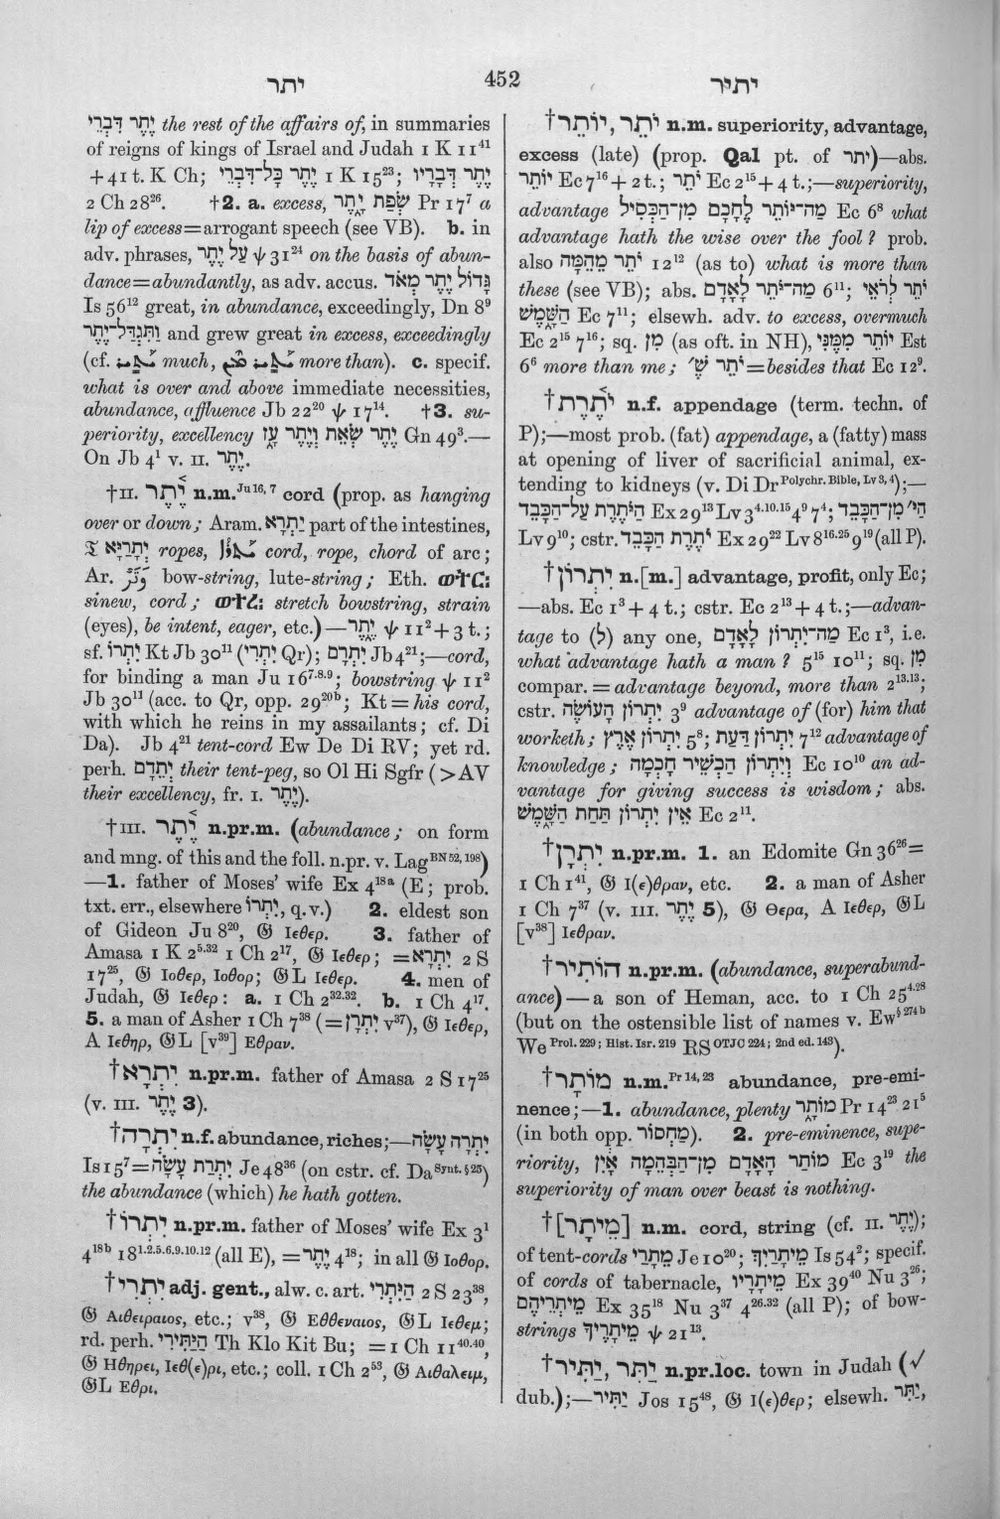 יתר
452
יתיר
יֶתֶר דִּבְרֵי the rest of the affairs of, in summaries
of reigns of kings of Israel and Judah 1 K 11⁴¹
+ 41 t. K Ch; יֶתֶר כָּל־דִּבְרֵי 1 K 15²³; יֶתֶר דְּבָרָיו
2 Ch 28²⁶. †2. a. excess, שְׂפַת יֶתֶר Pr 17⁷ a
lip of excess=arrogant speech (see VB). b. in
adv. phrases, עַל יֶתֶר ψ 31²⁴ on the basis of abun-
dance=abundantly, as adv. accus. גָּדוֹל יֶתֶר מְאֹד
Is 56¹² great, in abundance, exceedingly, Dn 8⁹
וַתִּגְדַּל־יֶתֶר and grew great in excess, exceedingly
(cf. much, more than). c. specif.
what is over and above immediate necessities,
abundance, affluence Jb 22²⁰ ψ 17¹⁴. †3. su-
periority, excellency יֶתֶר שְׂאֵת וְיֶתֶר עָז Gn 49³.—
On Jb 4¹ v. II. יֶתֶר.
†II. יֶ֫תֶר n.m. Ju 16, 7 cord (prop. as hanging
over or down; Aram. יִתְרָא part of the intestines,
𝔗 יִתְרָיָא ropes, cord, rope, chord of arc;
Ar. وَتَرٌ bow-string, lute-string; Eth. ወትር፡
sinew, cord; ወተረ፡ stretch bowstring, strain
(eyes), be intent, eager, etc.)—יֶתֶר ψ 11² + 3 t.;
sf. יִתְרוֹ Kt Jb 30¹¹ (יִתְרִי Qr); יִתְרָם Jb 4²¹;—cord,
for binding a man Ju 16⁷·⁸·⁹; bowstring ψ 11²
Jb 30¹¹ (acc. to Qr, opp. 29²⁰ᵇ; Kt=his cord,
with which he reins in my assailants; cf. Di
Da). Jb 4²¹ tent-cord Ew De Di RV; yet rd.
perh. יְתֵדָם their tent-peg, so Ol Hi Sgfr (>AV
their excellency, fr. I. יֶתֶר).
†III. יֶ֫תֶר n.pr.m. (abundance; on form
and mng. of this and the foll. n.pr. v. Lag BN 52, 198)
—1. father of Moses' wife Ex 4¹⁸ᵃ (E; prob.
txt. err., elsewhere יִתְרוֹ, q.v.) 2. eldest son
of Gideon Ju 8²⁰, 𝔊 Ιεθερ. 3. father of
Amasa 1 K 2⁵·³² 1 Ch 2¹⁷, 𝔊 Ιεθερ; =יִתְרָא 2 S
17²⁵, 𝔊 Ιοθερ, Ιοθορ; 𝔊L Ιεθερ. 4. men of
Judah, 𝔊 Ιεθερ: a. 1 Ch 2³²·³². b. 1 Ch 4¹⁷.
5. a man of Asher 1 Ch 7³⁸ (=יִתְרָן v³⁷), 𝔊 Ιεθερ,
A Ιεθηρ, 𝔊L [v³⁹] Εθραν.
†יִתְרָא n.pr.m. father of Amasa 2 S 17²⁵
(v. III. יֶתֶר 3).
†יִתְרָה n.f. abundance, riches;—יִתְרָה עָשָׂה
Is 15⁷=יִתְרַת עָשָׂה Je 48³⁶ (on cstr. cf. Da Synt. § 25)
the abundance (which) he hath gotten.
†יִתְרוֹ n.pr.m. father of Moses' wife Ex 3¹
4¹⁸ᵇ 18¹·²·⁵·⁶·⁹·¹⁰·¹² (all E), =יֶתֶר 4¹⁸; in all 𝔊 Ιοθορ.
†יִתְרִי adj. gent., alw. c. art. הַיִּתְרִי 2 S 23³⁸,
𝔊 Αιθειραιος, etc.; v³⁸, 𝔊 Εθθεναιος, 𝔊L Ιεθεμ;
rd. perh. הַיַּתִּירִי Th Klo Kit Bu; =1 Ch 11⁴⁰·⁴⁰,
𝔊 Ηθηρει, Ιεθ(ε)ρι, etc.; coll. 1 Ch 2⁵³, 𝔊 Αιθαλειμ,
𝔊L Εθρι.
†יֹתֵר, יוֹתֵר n.m. superiority, advantage,
excess (late) (prop. Qal pt. of יתר)—abs.
יוֹתֵר Ec 7¹⁶ + 2 t.; יֹתֵר Ec 2¹⁵ + 4 t.;—superiority,
advantage מַה־יּוֹתֵר לֶחָכָם מִן־הַכְּסִיל Ec 6⁸ what
advantage hath the wise over the fool? prob.
also יֹתֵר מֵהֵמָּה 12¹² (as to) what is more than
these (see VB); abs. מַה־יֹּתֵר לָאָדָם 6¹¹; יֹתֵר לְרֹאֵי
הַשָּׁמֶשׁ Ec 7¹¹; elsewh. adv. to excess, overmuch
Ec 2¹⁵ 7¹⁶; sq. מִן (as oft. in NH), יוֹתֵר מִמֶּנִּי Est
6⁶ more than me; יֹתֵר שֶׁ׳=besides that Ec 12⁹.
†יֹתֶ֫רֶת n.f. appendage (term. techn. of
P);—most prob. (fat) appendage, a (fatty) mass
at opening of liver of sacrificial animal, ex-
tending to kidneys (v. Di Dr Polychr. Bible, Lv 3, 4);—
הַיֹּתֶרֶת עַל־הַכָּבֵד Ex 29¹³ Lv 3⁴·¹⁰·¹⁵ 4⁹ 7⁴; הַי׳ מִן־הַכָּבֵד
Lv 9¹⁰; cstr. יֹתֶרֶת הַכָּבֵד Ex 29²² Lv 8¹⁶·²⁵ 9¹⁹ (all P).
†יִתְרוֹן n.[m.] advantage, profit, only Ec;
—abs. Ec 1³ + 4 t.; cstr. Ec 2¹³ + 4 t.;—advan-
tage to (לְ) any one, מַה־יִּתְרוֹן לָאָדָם Ec 1³, i.e.
what advantage hath a man? 5¹⁵ 10¹¹; sq. מִן
compar. = advantage beyond, more than 2¹³·¹³;
cstr. יִתְרוֹן הָעוֹשֶׂה 3⁹ advantage of (for) him that
worketh; יִתְרוֹן אֶרֶץ 5⁸; יִתְרוֹן דַּעַת 7¹² advantage of
knowledge; וְיִתְרוֹן הַכְשֵׁיר חָכְמָה Ec 10¹⁰ an ad-
vantage for giving success is wisdom; abs.
אֵין יִתְרוֹן תַּחַת הַשָּׁמֶשׁ Ec 2¹¹.
†יִתְרָן n.pr.m. 1. an Edomite Gn 36²⁶=
1 Ch 1⁴¹, 𝔊 Ι(ε)θραν, etc. 2. a man of Asher
1 Ch 7³⁷ (v. III. יֶתֶר 5), 𝔊 Θερα, A Ιεθερ, 𝔊L
[v³⁸] Ιεθραν.
†הוֹתִיר n.pr.m. (abundance, superabund-
ance)—a son of Heman, acc. to 1 Ch 25⁴·²⁸
(but on the ostensible list of names v. Ew § 274 b
We Prol. 229; Hist. Isr. 219 RS OTJC 224; 2nd ed. 143).
†מוֹתָר n.m. Pr 14, 23 abundance, pre-emi-
nence;—1. abundance, plenty מוֹתָר Pr 14²³ 21⁵
(in both opp. מַחְסוֹר). 2. pre-eminence, supe-
riority, מוֹתַר הָאָדָם מִן־הַבְּהֵמָה אָיִן Ec 3¹⁹ the
superiority of man over beast is nothing.
†[מֵיתָר] n.m. cord, string (cf. II. יֶתֶר);
of tent-cords מֵתָרַי Je 10²⁰; מֵיתָרַיִךְ Is 54²; specif.
of cords of tabernacle, מֵיתָרָיו Ex 39⁴⁰ Nu 3²⁶;
מֵיתְרֵיהֶם Ex 35¹⁸ Nu 3³⁷ 4²⁶·³² (all P); of bow-
strings מֵיתָרֶיךָ ψ 21¹³.
†יַתִּר, יַתִּיר n.pr.loc. town in Judah (√
dub.);—יַתִּיר Jos 15⁴⁸, 𝔊 Ι(ε)θερ; elsewh. יַתִּר,